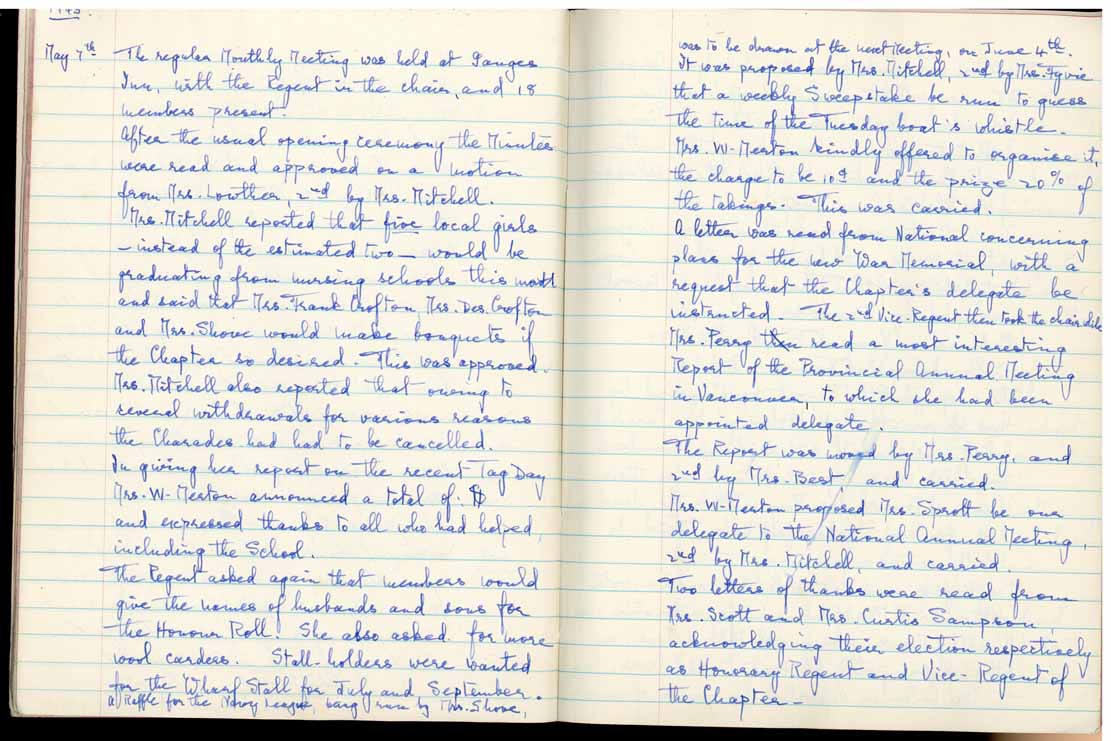 May 7th The regular Monthly Meeting was held at Ganges
Inn, with the Regent in the chair, and 18
members present.
After the usual opening ceremony the Minutes
were read and approved on a motion
from Mrs. Lowther, 2nd by Mrs. Mitchell.
Mrs. Mitchell reported that five local girls
– instead of the estimated two – would be
graduating from nursing schools this month
and said that Mrs. Frank Crofton, Mrs. Des. Crofton
and Mrs. Shove would make bouquets if
the Chapter so desired. This was approved.
Mrs. Mitchell also reported that owing to
several withdrawals for various reasons
the Charades had had to be cancelled.
In giving her report on the recent Tag Day
Mrs. W-Merton announced a total of: $
and expressed thanks to all who had helped,
including the School.
The Regent asked again that members would
give the names of husbands and sons for
the Honour Roll. She also asked for more
wool carders. Stall-holders were wanted
for the Wharf Stall for July and September.
a Raffle for the Navy League, being run by Mrs. Shove,
was to be drawn at the next Meeting, on June 4th.
It was proposed by Mrs. Mitchell, 2nd by Mrs. Fyvie
that a weekly Sweepstake be run to guess
the time of the Tuesday boat's whistle.
Mrs. W-Merton kindly offered to organise it,
the charge to be 10¢ and the prize 20% of
the takings. This was carried.
A letter was read from National concerning
plans for the new War Memorial, with a
request that the Chapter's delegate be
instructed. The 2nd Vice-Regent then took the chair while
Mrs. Perry then read a most interesting
Report of the Provincial Annual Meeting
in Vancouver, to which she had been
appointed delegate.
The Report was moved by Mrs. Perry, and
2nd by Mrs. Best, and carried.
Mrs. W-Merton proposed Mrs. Sprott be our
delegate to the National Annual Meeting,
2nd by Mrs. Mitchell, and carried.
Two letters of thanks were read from
Mrs. Scott and Mrs. Curtis Sampson,
acknowledging their election respectively
as Honorary Regent and Vice-Regent of
the Chapter –